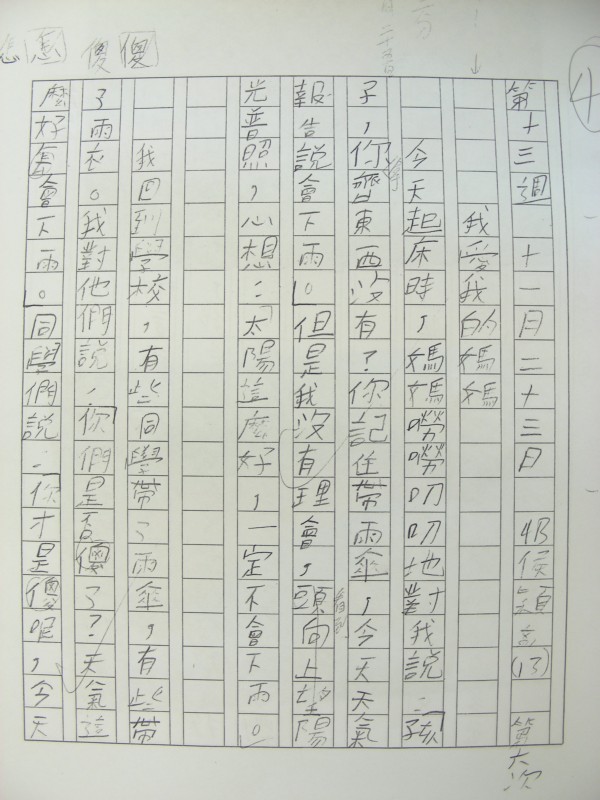 第十三週 十一月二十三日 4B 侯穎言(13) 第六次
我愛我的媽媽
今天起床時,媽媽嘮嘮叨叨地對我說:「孩
子,你齊東西沒有?你記住帶雨傘,今天天氣
報告說會下雨。」但是我沒有理會,頭向上望陽
光普照,心想:太陽這麼好,一定不會下雨。
我回到學校,有些同學帶了雨傘,有些帶
了雨衣。我對他們說:「你們是否傻了?天氣這
麼好怎會下雨。」同學們說:「你才是傻呢,今天
4
傻傻